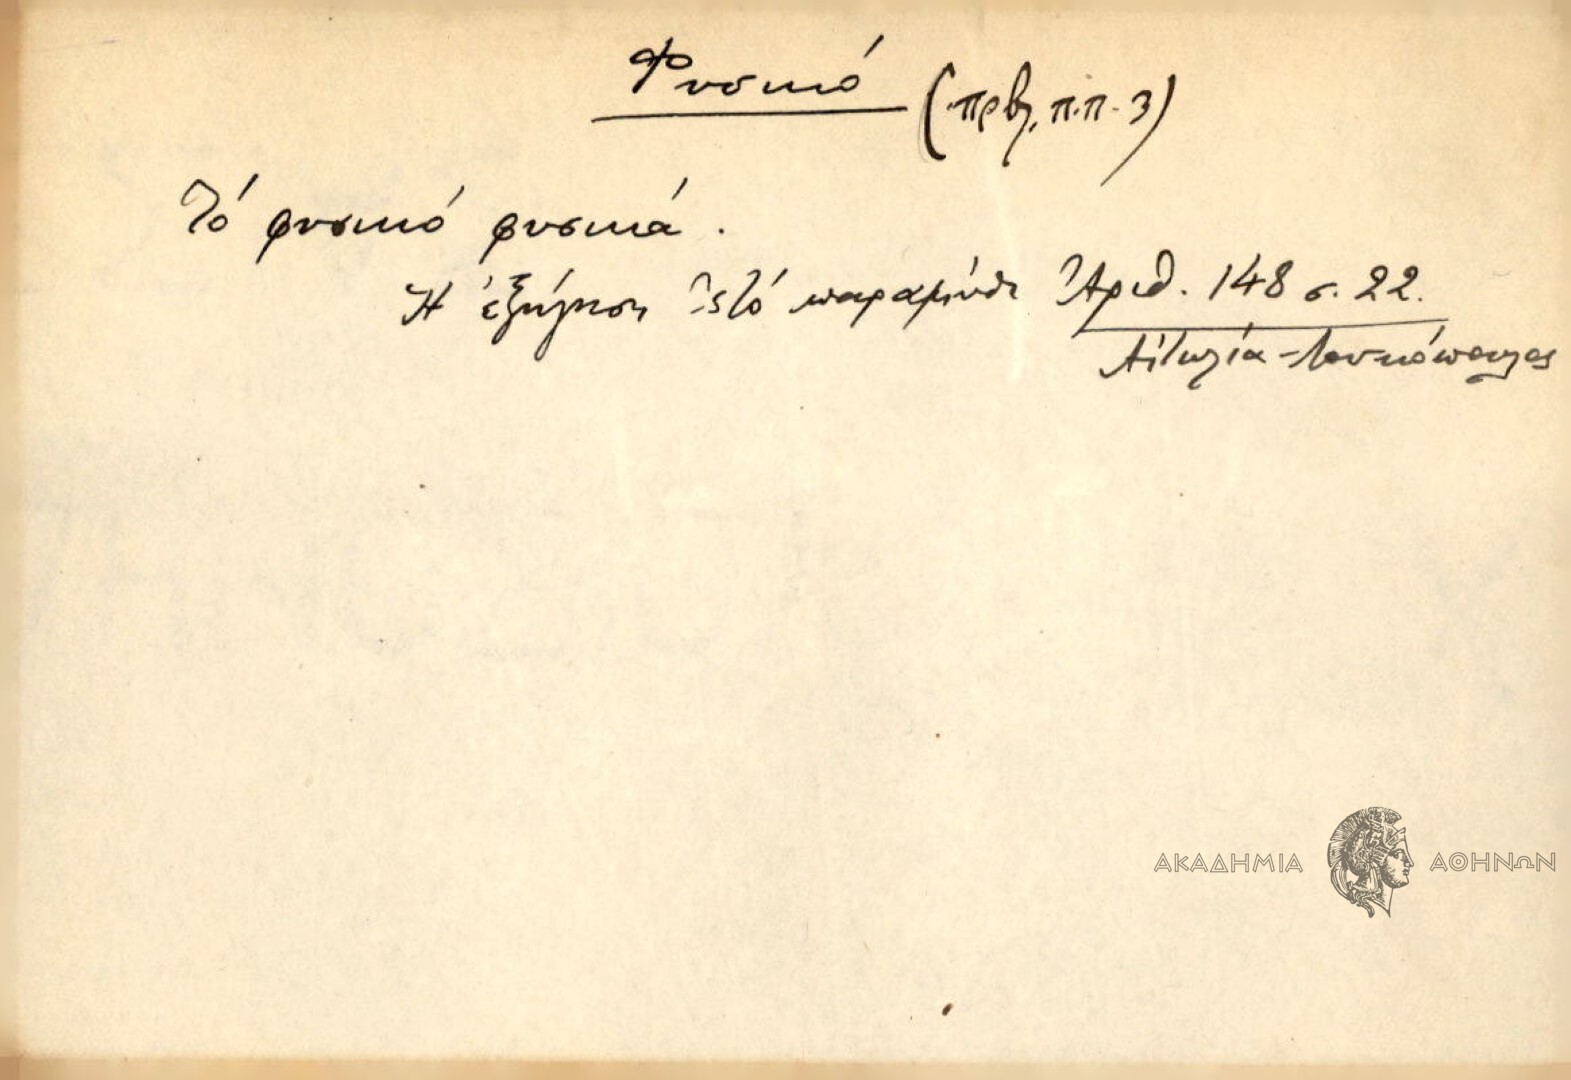 Φυσικό (πρβλ. π.π. 3)
Τό φυσικό φυσικά.
Η ἐξήγηση 'ςτό παραμύθι Ἀριθ. 148 σ. 22.
Αἰτωλία - Λουκόπουλος
ΑΚΑΔΗΜΙΑ ΑΘΗΝΩΝ